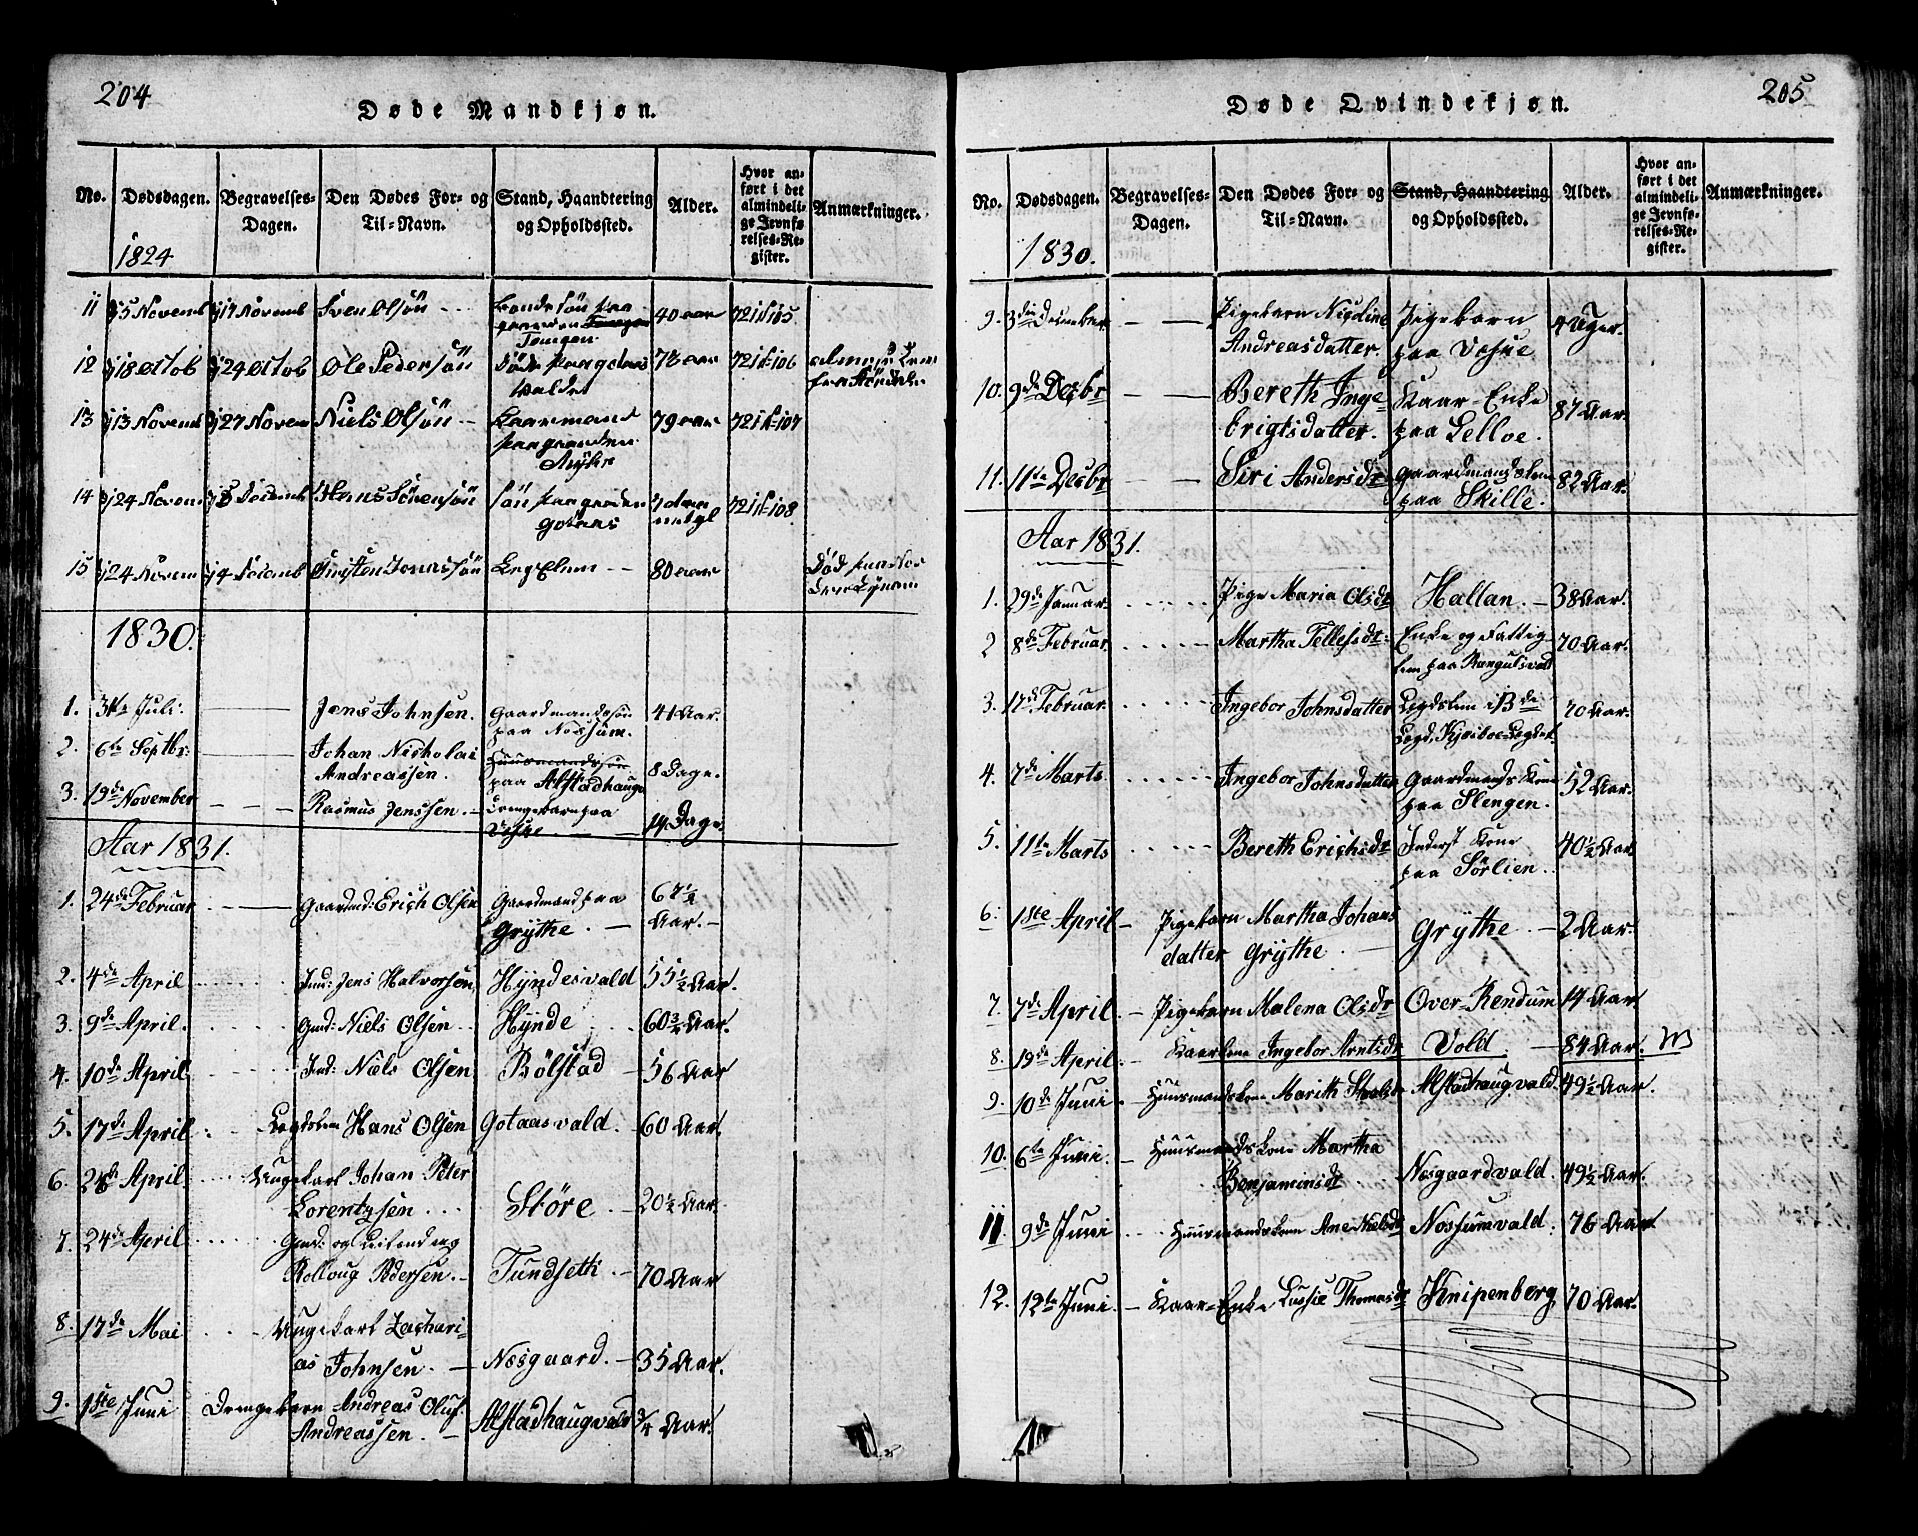 204
Døde Mandkjøn.
No. Dødsdagen. Begravelses-Dagen. Den Dødes For- og Til-Navn. Stand, Haandtering og Opholdssted. Alder. Hvor anført i det almindelige Jevnførelses-Register. Anmærkninger.
1824
11 5 Novemb 17 Novemb Sven Olsøn Bondesøn paa gaarden Tomgen 40 aar 72 No 105
12 18 Octob 24 Octob Ole Pedersøn 72 No 106
13 13 Novemb 27 Novem Niels Olsøn Kaarmand paa gaarden 79 aar 72 No 107
14 24 Novem Decemb Hans Sörensøn søn paa gaarden Gotaas 72 No 108
15 24 Novem 4 Decemb Christen Jonassøn Leg Lem 80 aar Død paa
1830.
1. 31te Juli. Jens Johnsen. Gaardmandssøn paa Nossum. 41 Aar.
2. 6te Septbr: Johan Nicholai Andreassen. Huusmandssøn paa Alstadhaug 8 Dage.
3. 19de November Rasmus Jenssen. Drengebarn paa Vosue 14 Dage.
Aar 1831.
1. 24de Februar Gaardmd: Erich Olsen Gaardmand paa Grÿthe. 67½ Aar.
2. 4de April Ind: Jens Halvorsen, Hÿndesvald 55½ Aar.
3. 9de April. Gmd: Niels Olsen Hÿnde 60¾ Aar.
4. 10de April Ind: Niels Olsen Bölstad 56 Aar
5. 17de April Legdslem Hans Olsen Gotaasvald. 60 Aar.
6. 28de April. Ungekarl Johan Peter Lorentzsen Störe. 20½ Aar.
7. 24de April Gmd: og Rolloug Pedersen. Tundsetti 70 Aar
8. 17de Mai Ungekarl Zacharias Johnsen. Næsgaard. 35 Aar.
9. 1ste Juni Drengebarn Andreas Oluf Andreassen. Alstadhaugvald ¾ Aar.
205
Døde Qvindekjøn.
No. Dødsdagen. Begravelses-Dagen. Den Dødes For- og Til-Navn. Stand, Haandtering og Opholdssted. Alder. Hvor anført i det almindelige Jevnførelses-Register. Anmærkninger.
1830.
9. 3die December Pigebarn Nicoline Andreasdatter. Pigebarn paa Vosue 4 Uger.
10. 9de Decbr Bereth Ingebrigtsdatter. Kaar-Enke paa Lelloe. 87 Aar.
11. 11te Decbr Siri Andersdtr Gaardmandskone paa Skille. 82 Aar.
Aar 1831.
1. 29de Januar. Pige Maria Olsdtr Hallan. 38 Aar.
2 8de Februar. Martha Tellefsdtr: Enke og Fattiglem paa 70 Aar.
3. 17de Februar Ingebor Johnsdatter Legdslem i 13de Legd, 70 Aar.
4. 7de Marts. Ingebor Johnsdatter Gaardmands Kone paa Slengen. 52 Aar.
5. 11te Marts Bereth Erichsdtr Inderst Kone paa Sörlien. 40½ Aar
6. 1ste April Pigebarn Martha Johansdatter Grÿthe. Grÿthe. 2 Aar.
7. 7de April. Pigebarn Malena Olsdtr Over-Rendum 14 Aar
8. 19de April. Kaarkone Ingebor Arntsdtr Vold. 84 Aar.
9. 10de Juni. Huusmandskone Marith Alstadhaugvald. 49½ Aar.
10. 6te Juni. Huusmandskone Martha Benjaminsdtr Næsgaardvald. 49½ Aar.
11. 9de Juni Huusmandskone Ane Nielsdtr Nossumvald. 76 Aar
12. 12te Juni. Kaar-Enke Lussie Thomasdtr Knipenberg. 70 Aar.